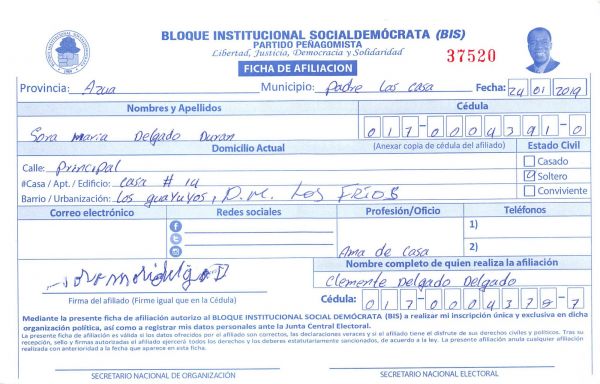 BLOQUE INSTITUCIONAL SOCIALDEMÓCRATA (BIS)
PARTIDO PEÑAGOMISTA
Libertad, Justicia, Democracia y Solidaridad
37520
FICHA DE AFILIACION
Provincia: Azua Municipio: Padre Las Casa Fecha: 24 01 2019
Nombres y Apellidos Cédula
Sora Maria Delgado Duran 017-0004391-0
Domicilio Actual (Anexar copia de cédula del afiliado) Estado Civil
Calle: Principal Casado
#Casa / Apt. / Edificio: casa # 14 Soltero
Barrio / Urbanización: Los guayuyos, D.M. Los FRIOS Conviviente
Correo electrónico Redes sociales Profesión/Oficio Teléfonos
1)
Ama de Casa 2)
Nombre completo de quien realiza la afiliación
Clemente Delgado Delgado
Firma del afiliado (Firme igual que en la Cédula) Cédula: 017-0004378-7
Mediante la presente ficha de afiliación autorizo al BLOQUE INSTITUCIONAL SOCIAL DEMÓCRATA (BIS) a realizar mi inscripción única y exclusiva en dicha
organización política, así como a registrar mis datos personales ante la Junta Central Electoral.
La presente ficha de afiliación es válida si los datos ofrecidos por el afiliado son correctos, las declaraciones veraces y si el afiliado tiene el disfrute de sus derechos civiles y políticos. Tras su
recepción, sello y firmas autorizadas el afiliado ejercerá todos los derechos y los deberes estatutariamente sancionados, de acuerdo a la ley. La presente afiliación anula cualquier afiliación
realizada con anterioridad a la fecha que aparece en esta ficha.
SECRETARIO NACIONAL DE ORGANIZACIÓN SECRETARIO NACIONAL ELECTORAL